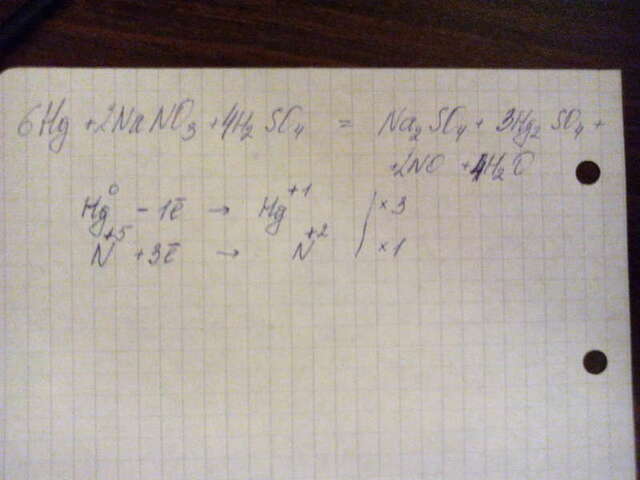 6Hg + 2NaNO₃ + 4H₂SO₄ = Na₂SO₄ + 3Hg₂SO₄ +
+ 2NO + 4H₂O
Hg⁰ - 1ē → Hg⁺¹ | ×3
N⁺⁵ + 3ē → N⁺² | ×1